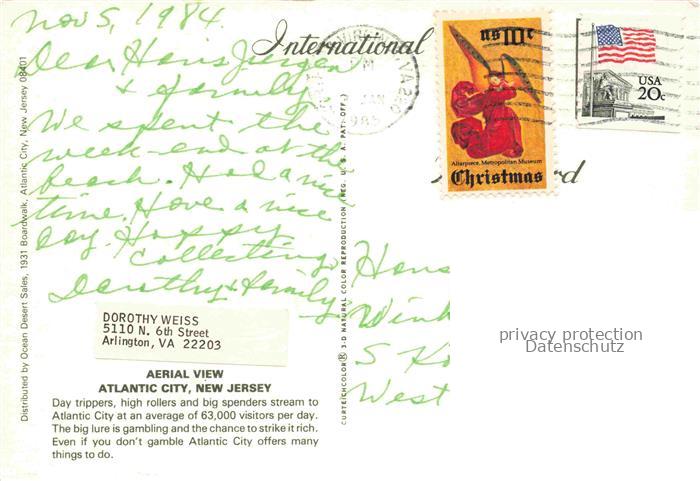 Nov 5, 1984.
Dear Hans Jurgen
& family
We spent the
week-end at the
beach. Had a nice
time. Have a nice
day. Happy
collecting.
Dorothy & family
DOROTHY WEISS
5110 N. 6th Street
Arlington, VA 22203
AERIAL VIEW
ATLANTIC CITY, NEW JERSEY
Day trippers, high rollers and big spenders stream to
Atlantic City at an average of 63,000 visitors per day.
The big lure is gambling and the chance to strike it rich.
Even if you don't gamble Atlantic City offers many
things to do.
Distributed by Ocean Desert Sales, 1931 Boardwalk, Atlantic City, New Jersey 08401
CURTEICHCOLOR® 3-D NATURAL COLOR REPRODUCTION (REG. U.S.A. PAT. OFF.)
International
JAN
1985
US 10c
Altarpiece, Metropolitan Museum
Christmas
USA
20c
rd
Hans
Wink
S Kö
West
privacy protection
Datenschutz